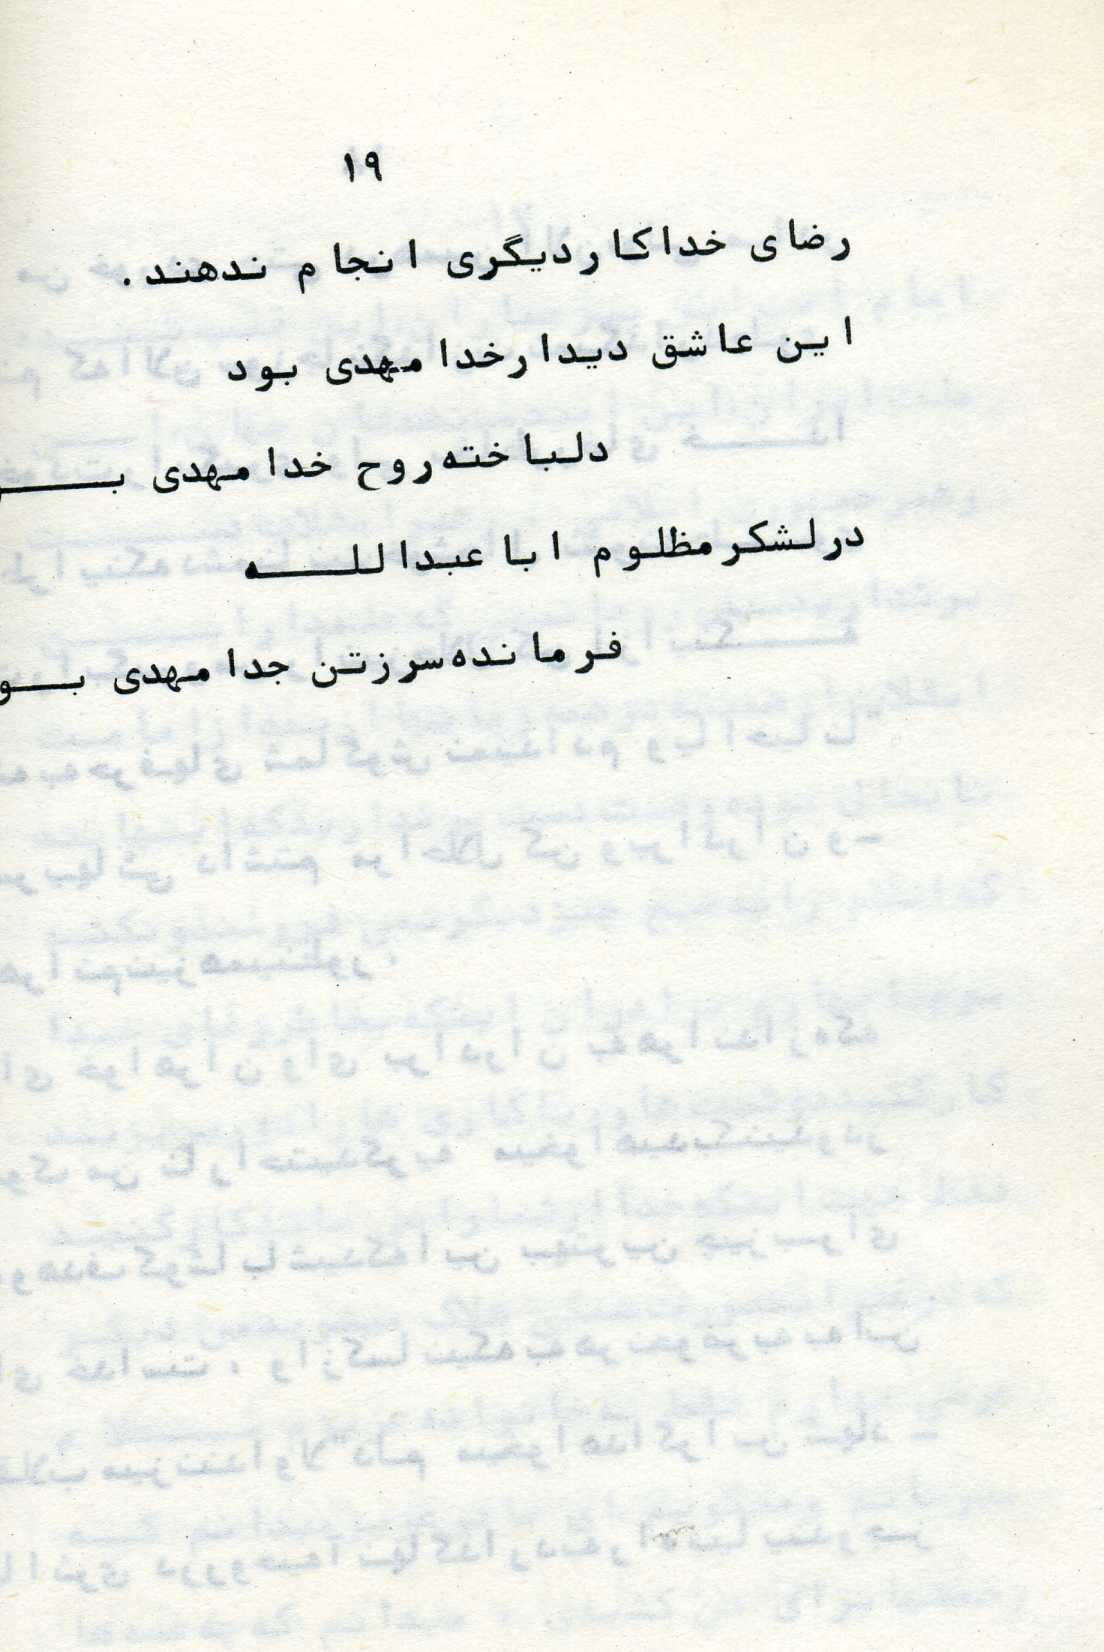 ۱۹
رضای خداکاردیگری انجام ندهند.
این عاشق دیدارخدامهدی بود
دلباخته روح خدامهدی
درلشکرمظلوم اباعبدالله
فرمانده سرزتن جدامهدی